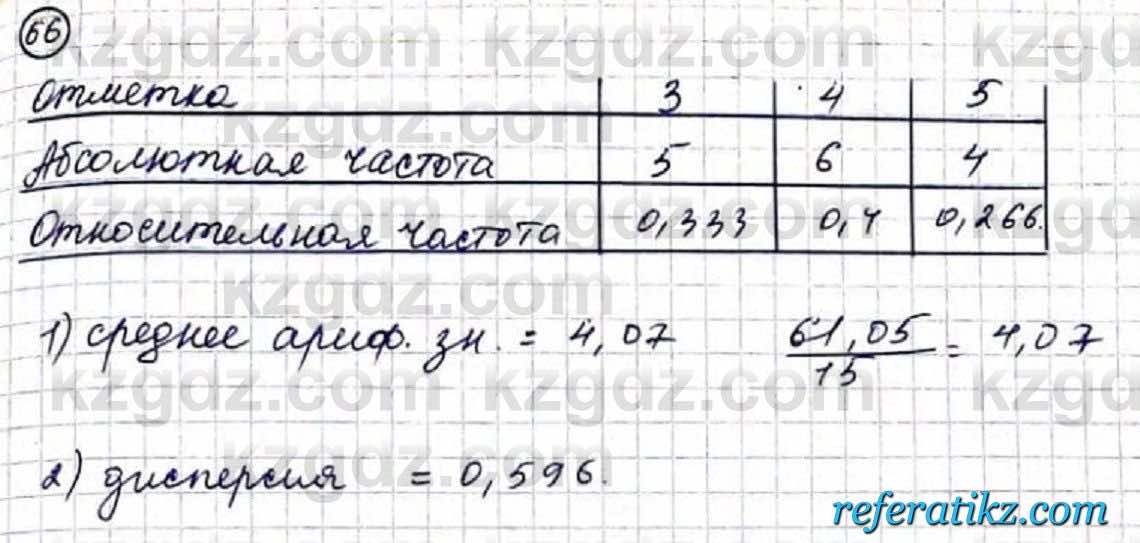 66
Отметка 3 4 5
Абсолютная частота 5 6 4
Относительная частота 0,333 0,4 0,266.
1) среднее ариф. зн. = 4,07 61,05/15 = 4,07
2) дисперсия = 0,596.
referatikz.com
kzgdz.com